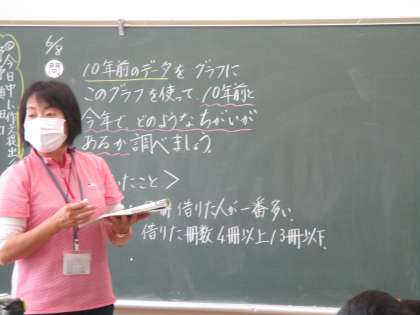 6/8
10年前のデータをグラフに
このグラフを使って10年前と
今年で、どのようなちがいが
あるか調べましょう。
たこと＞
借りた人が一番多い。
借りた冊数4冊以上13冊以下
今日中に作文提出